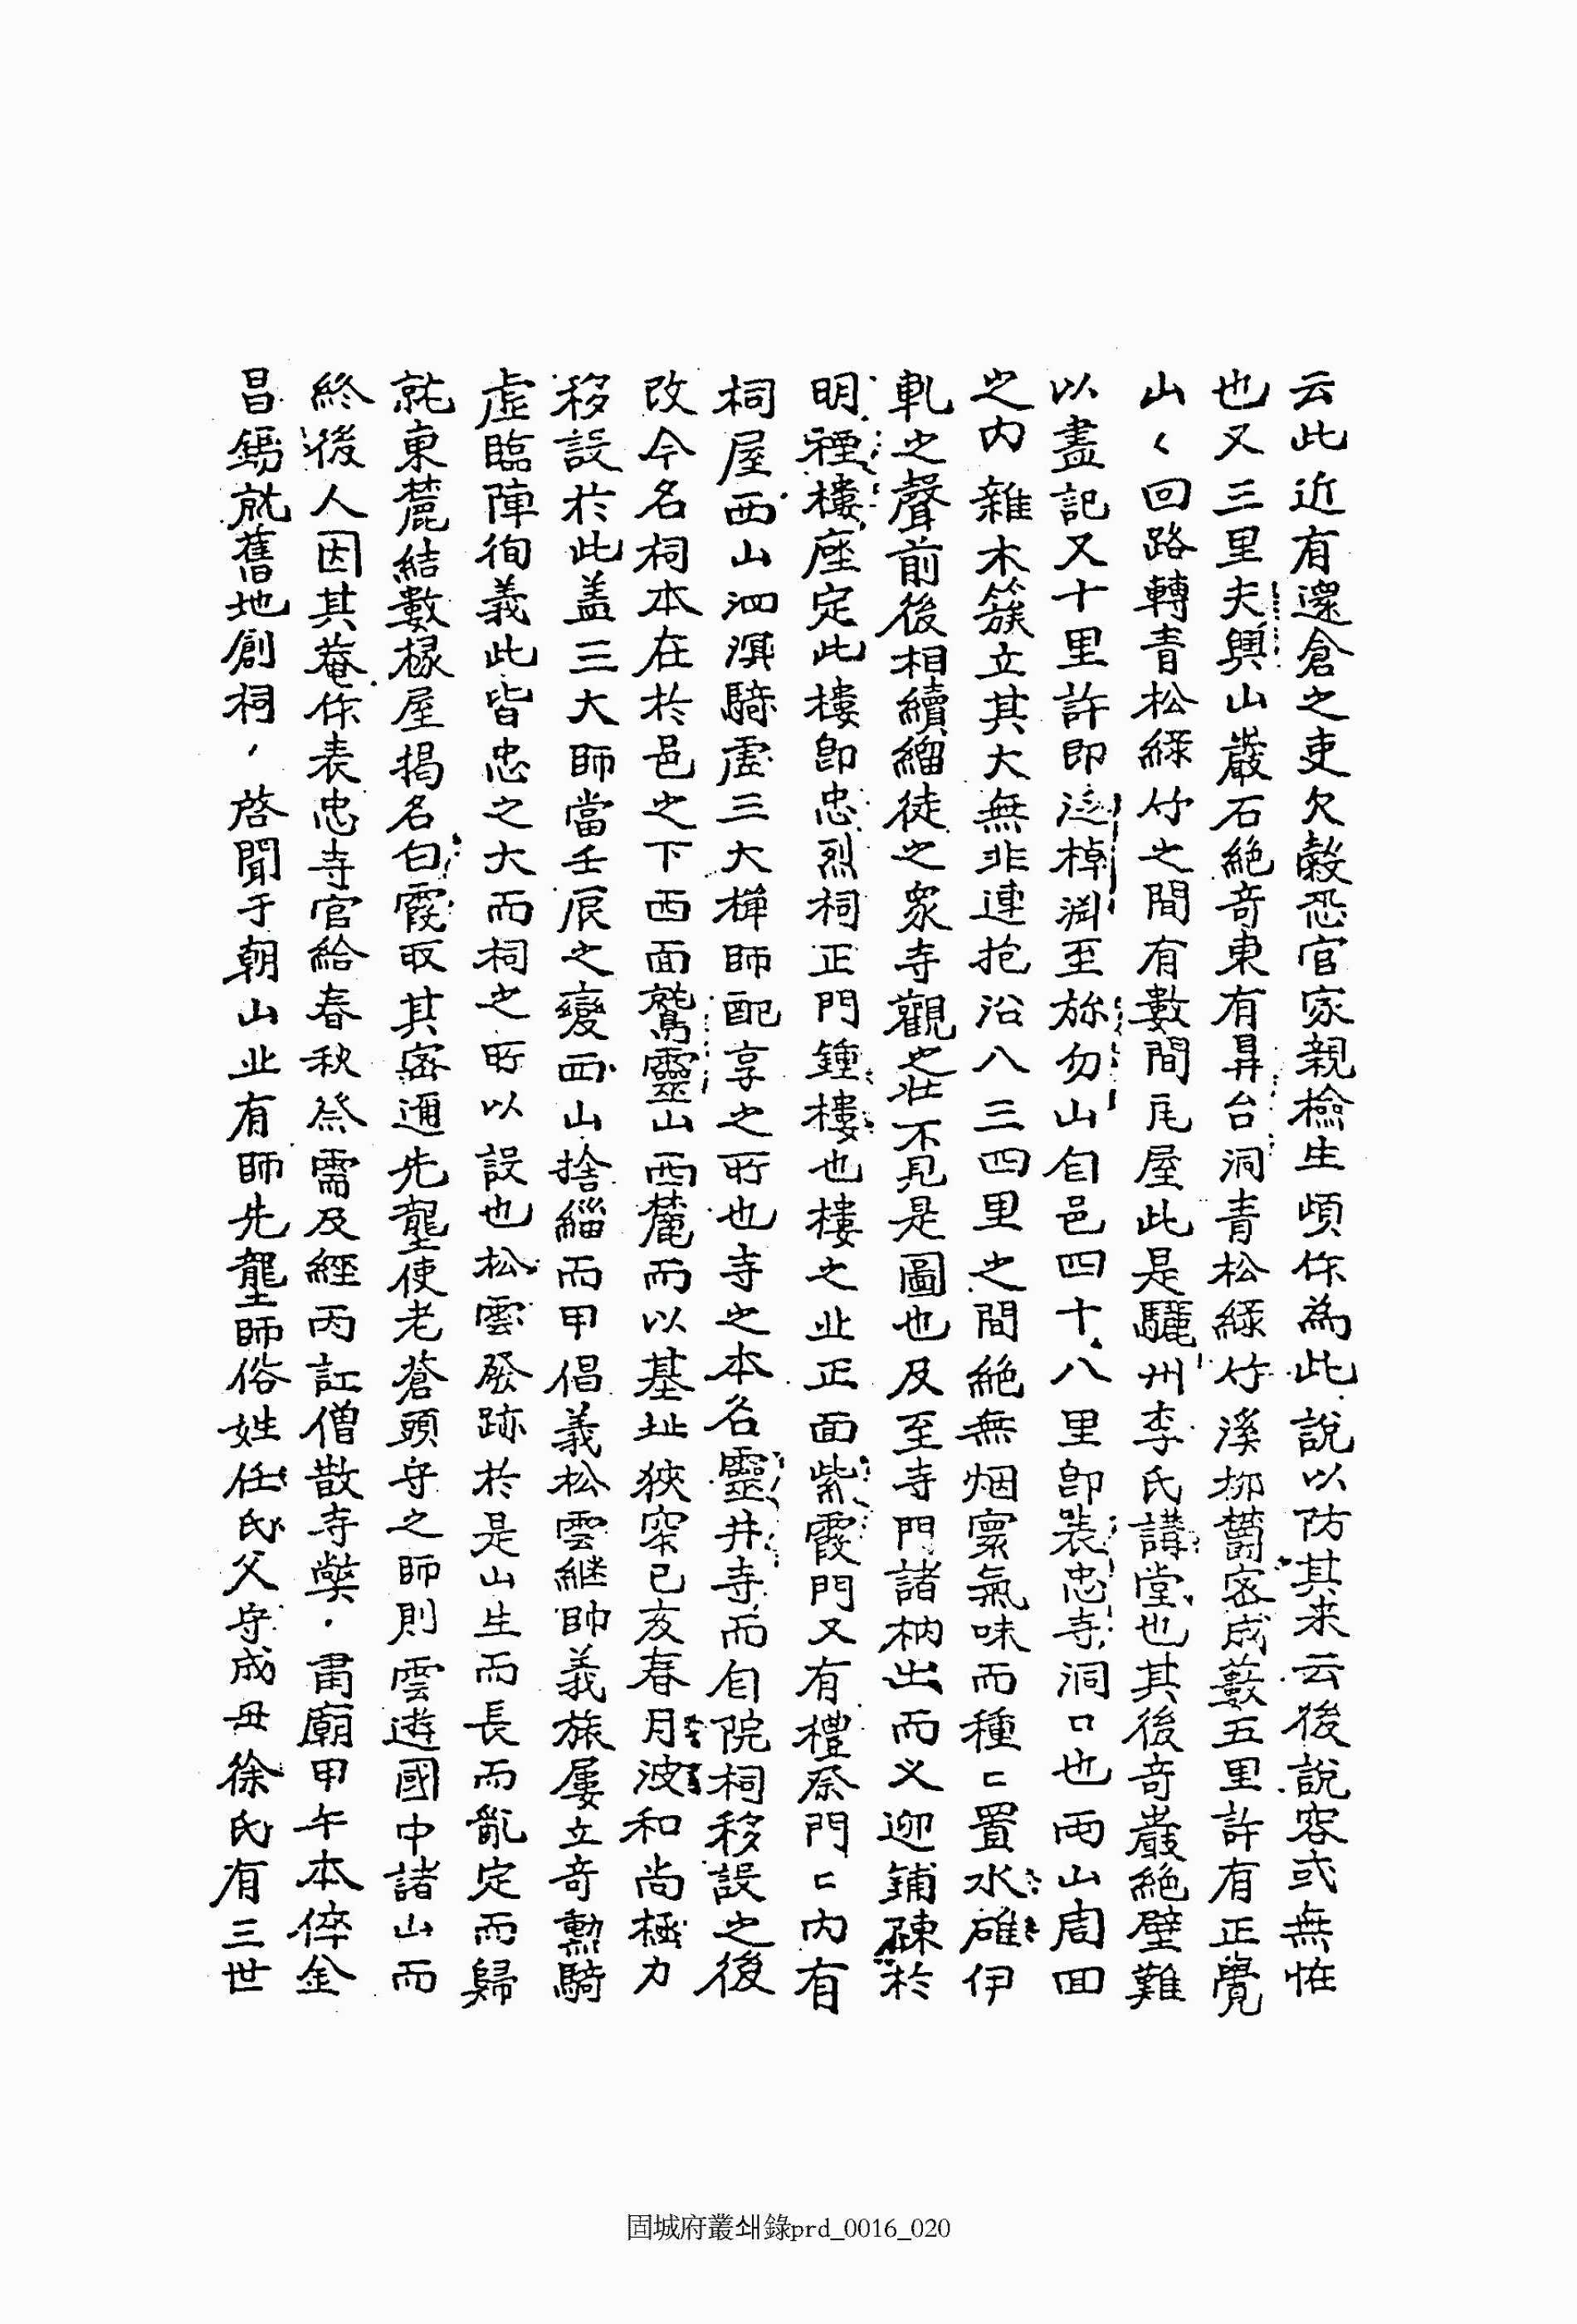 云此近有還倉之吏欠穀恐官家親檢生頉你為此說以防其来云後說容或無恠
也又三里夫興山巖石絶奇東有昇台洞青松綠竹溪柳欝密成藪五里許有正覺
山〻回路轉青松綠竹之間有數間瓦屋此是驪州李氏講堂也其後奇巖絶壁難
以盡記又十里許即 棹渊至 勿山自邑四十八里卽表忠寺洞口也両山周回
之内雜木簇立其大無非連抱沿八三四里之間絶無烟㝡氣味而種〻置水碓伊
軋之聲前後相續緇徒之衆寺觀之壯不見是圖也及至寺門諸衲出而义迎鋪 於
明禋樓座定此樓卽忠烈祠正門鍾樓也樓之北正面紫霞門又有禮祭門〻内有
祠屋西山泗溟騎虛三大禅師配享之所也寺之本名靈井寺而自院祠移設之後
改今名祠本在於邑之下西面鷲靈山西麓而以基址狹窄已亥春月波和尚極力
移設於此盖三大師當壬辰之變西山捨緇而甲倡義松雲継帥義旅屢立奇勲騎
虛臨陣徇義此皆忠之大而祠之所以設也松雲發跡於是山生而長而亂定而歸
就東麓結數椽屋揭名白霞取其密邇先壟使老蒼頭守之師則雲遊國中諸山而
終後人因其菴你表忠寺官給春秋祭需及經丙訌僧散寺獘·書廟甲午本倅金
昌錫就舊地創祠,啓聞于朝山北有師先壟師俗姓任氏父守成母徐氏有三世
固城府叢쇄錄prd_0016_020